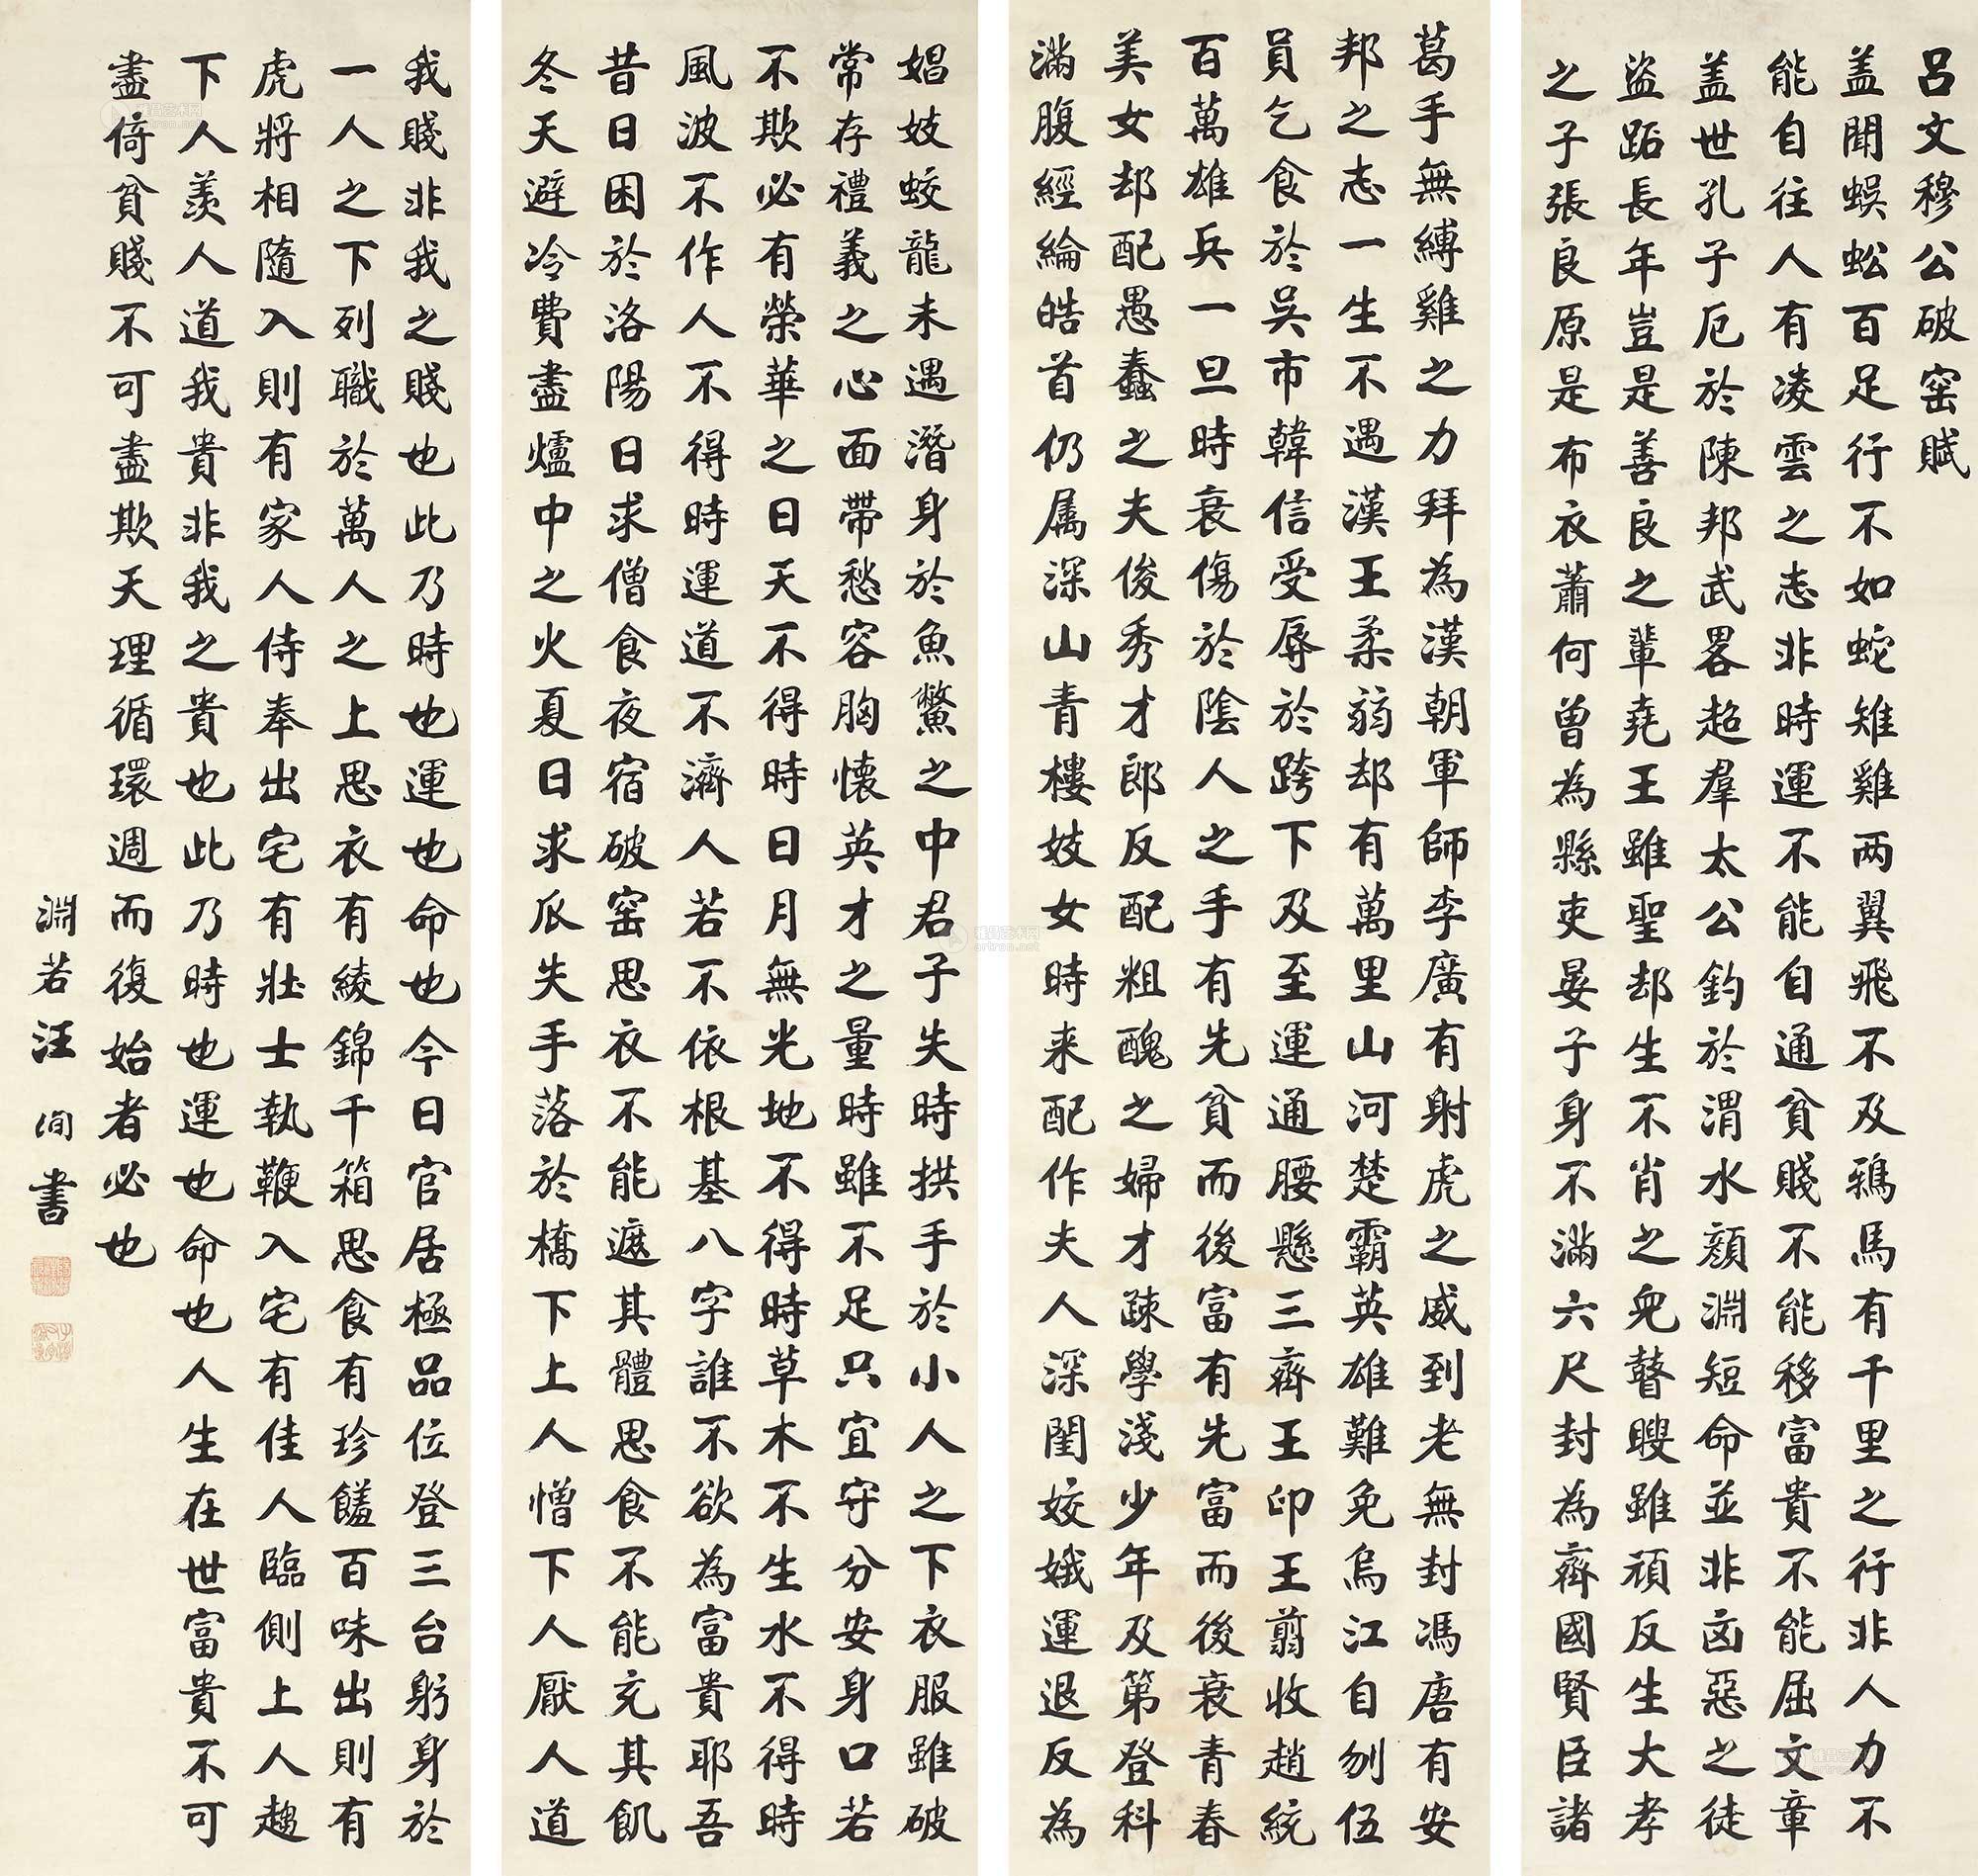 呂文穆公破窑賦
盖聞蜈蚣百足行不如蛇雉雞两翼飛不及鴉馬有千里之行非人力不
能自往人有凌雲之志非時運不能自通貧賤不能移富貴不能屈文章
盖世孔子厄於陳邦武畧超羣太公釣於渭水顔淵短命並非凶惡之徒
盜跖長年豈是善良之輩堯王雖聖却生不肖之兒瞽瞍雖頑反生大孝
之子張良原是布衣蕭何曾為縣吏晏子身不滿六尺封為齊國賢臣諸
葛手無縛雞之力拜為漢朝軍師李廣有射虎之威到老無封馮唐有安
邦之志一生不遇漢王柔弱却有萬里山河楚霸英雄難免烏江自刎伍
員乞食於吳市韓信受辱於跨下及至運通腰懸三齊王印王翦收趙統
百萬雄兵一旦時衰傷於陰人之手有先貧而後富有先富而後衰青春
美女却配愚蠢之夫俊秀才郎反配粗醜之婦才疎學淺少年及第登科
滿腹經綸皓首仍属深山青樓妓女時来配作夫人深閨姣娥運退反為
娼妓蛟龍未遇潛身於魚鱉之中君子失時拱手於小人之下衣服雖破
常存禮義之心面帶愁容胸懷英才之量時雖不足只宜守分安身口若
不欺必有榮華之日天不得時日月無光地不得時草木不生水不得時
風波不作人不得時運道不濟人若不依根基八字誰不欲為富貴耶吾
昔日困於洛陽日求僧食夜宿破窑思衣不能遮其體思食不能充其飢
冬天避冷費盡爐中之火夏日求瓜失手落於橋下上人憎下人厭人道
我賤非我之賤也此乃時也運也命也今日官居極品位登三台躬身於
一人之下列職於萬人之上思衣有綾錦千箱思食有珍饈百味出則有
虎將相隨入則有家人侍奉出宅有壯士執鞭入宅有佳人臨側上人趨
下人羨人道我貴非我之貴也此乃時也運也命也人生在世富貴不可
盡倚貧賤不可盡欺天理循環週而復始者必也
淵若汪洵書
雅昌艺术网
artron.net